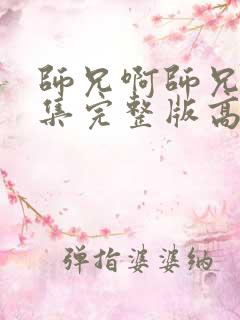 師兄啊師兄
集完整版高
弹指婆婆纳